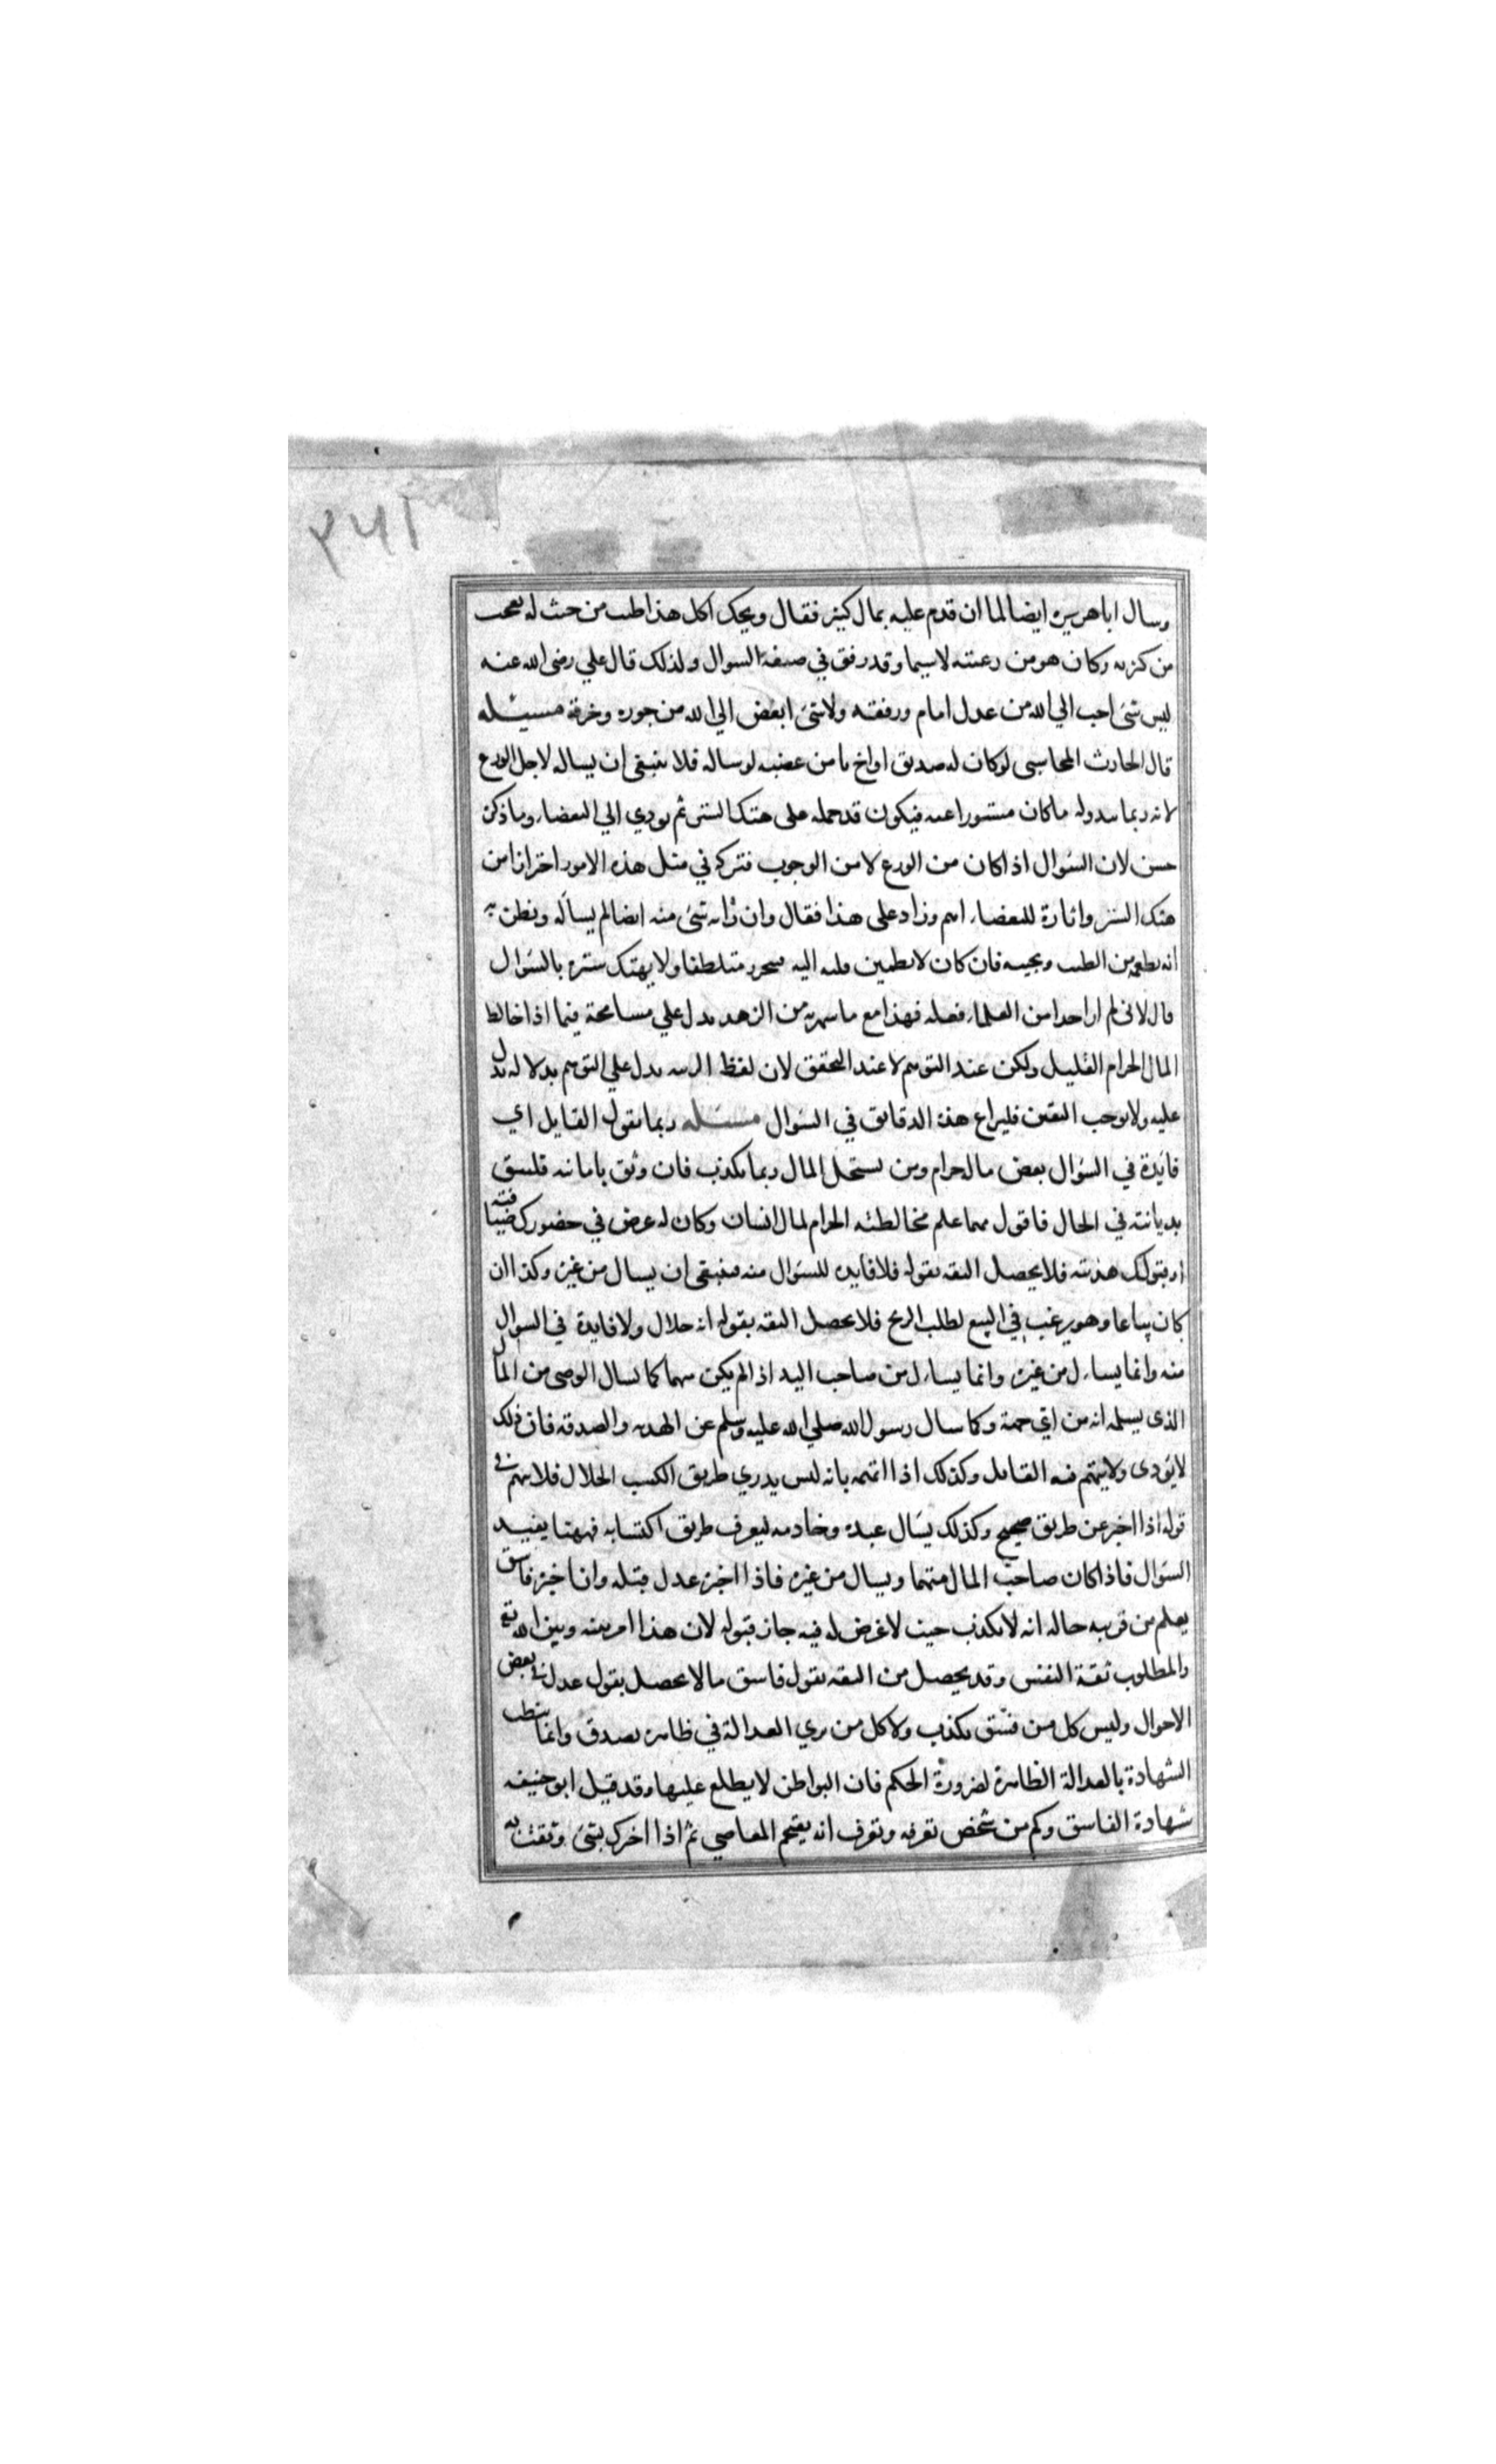 ٣٤١
وسال ابا هريره ايضا لما ان قدم عليه بمال كثير فقال ويحك اكل هذا طيب من حيث له تعجب
من كثرته وكان هو من رعيته لاسيما وقد رفق في صيغة السوال ولذلك قال علي رضي الله عنه
ليس شئ احب الي الله من عدل امام ورفقه ولا شئ ابغض الي الله من جوره وخرقه مسئله
قال الحارث المحاسبي لو كان له صديق او اخ يامن غضبه لو ساله فلا ينبغي ان يساله لاجل الورع
لانه ربما يبدو له ما كان مستورا عنه فيكون قد حمله على هتك الستر ثم يودي الي البغضاء وما ذكره
حسن لان السوال اذا كان من الورع لا من الوجوب فتركه في مثل هذه الامور احترازا من
هتك الستر واثارة للبغضاء اهم وزاد على هذا فقال وان رابه شئ منه ايضا لم يساله ونظن به
انه يطعمه من الطيب ويجنبه فان كان لا يطمين قلبه اليه فيتحرز متلطفا ولا يهتك ستره بالسوال
قال لاني لم ار احدا من العلماء فعله فهذا مع ما شهر به من الزهد يدل علي مسامحة فيما اذا خالط
المال الحرام القليل ولكن عند التوهم لا عند التحقق لان لفظ الريبه يدل علي التوهم بدلالة تدل
عليه ولا يوجب اليقين فليراع هذه الدقايق في السوال مسئله ربما يقول القايل اي
فايدة في السوال بعض ماله حرام ومن يستحل المال ربما يكذب فان وثق بامانته فليثق
بديانته في الحال فاقول مهما علم مخالطته الحرام لمال انسان وكان له غرض في حضورك ضيافته
او قبولك هديته فلا يحصل الثقه بقوله فلا فايده للسوال منه فينبغي ان يسال من غيره وكذا ان
كان بياعا وهو يرغب في البيع لطلب الربح فلا يحصل الثقه بقوله انه حلال ولا فايدة في السوال
منه وانما يساءل من غيره وانما يساءل من صاحب اليد اذا لم يكن متهما كما يسال الوصي من المال
الذي يسلمه انه من اي جهة وكما سال رسول الله صلي الله عليه وسلم عن الهديه والصدقه فان ذلك
لا يؤدي ولا يتهم فيه القايل وكذلك اذا اتهمه بانه ليس يدري طريق الكسب الحلال فلا يتهم في
قوله اذا اخبر عن طريق صحيح وكذلك يسال عبده وخادمه ليعرف طريق اكتسابه فههنا يفيد
السوال فاذا كان صاحب المال متهما ويسال من غيره فاذا اخبره عدل قبله وان اخبره فاسق
يعلم من قرينه حاله انه لا يكذب حيث لا غرض له فيه جاز قبوله لان هذا امر بينه وبين الله تع
والمطلوب ثقة النفس وقد يحصل من الثقه بقول فاسق ما لا يحصل بقول عدل في بعض
الاحوال وليس كل من فسق يكذب ولا كل من يري العدالة في ظاهره يصدق وانما ينطب
الشهادة بالعدالة الظاهرة لضرورة الحكم فان البواطن لا يطلع عليها وقد قبل ابو حنيفه
شهادة الفاسق وكم من شخص تعرفه وتعرف انه يقتحم المعاصي ثم اذا اخبرك بشئ وثقت به